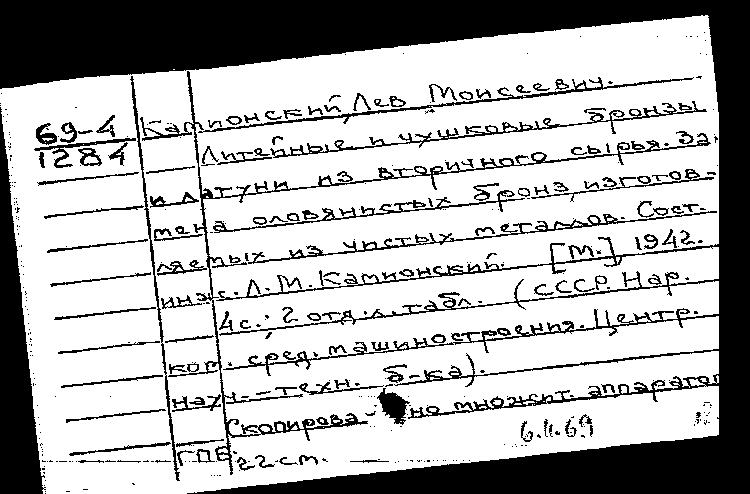 69-4
1284
Кампонский, Лев Моисеевич.
Литейные и чушковые бронзы
и латуни из вторичного сырья. За-
мена оловянистых бронз, изготов-
ляемых из чистых металлов. Сост.
инж. Л. М. Кампонский. [М.], 1942.
4 с.; 2 отд. л. табл. (СССР. Нар.
ком. сред. машиностроения. Центр.
научн.-техн. б-ка).
Скопирова-но множит. аппаратом
ГПБ; 22 см.
6.11.69